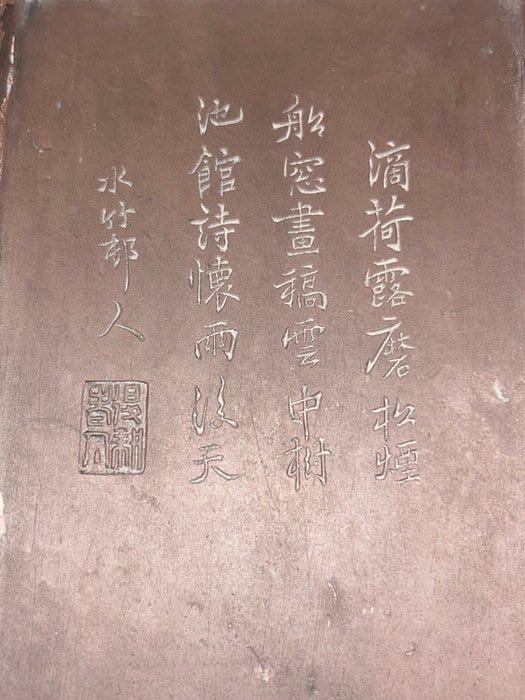 滴荷露磨松煙
船窓畫稿雲中樹
池館詩懷雨後天
水竹邨人